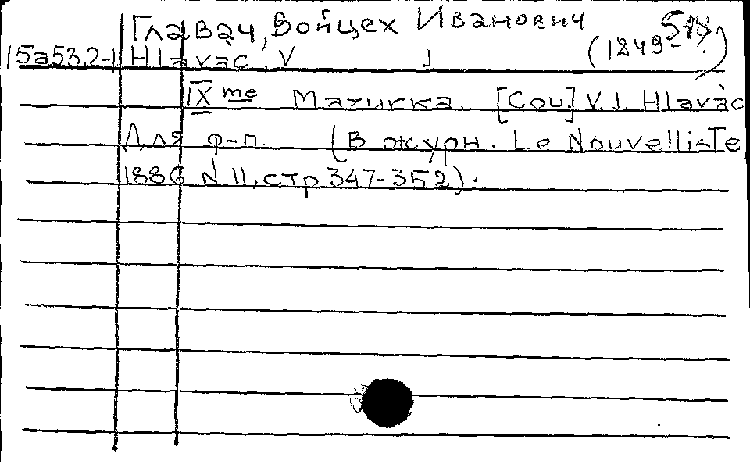 Главач, Войцех Иванович
15а532-1 Hlavác, V J (1849-
IX me Mazurka. [Соч] V. J. Hlavàc
Для ф-п. (В журн. Le Nouvelliste
1886 N 11, стр 347-352).